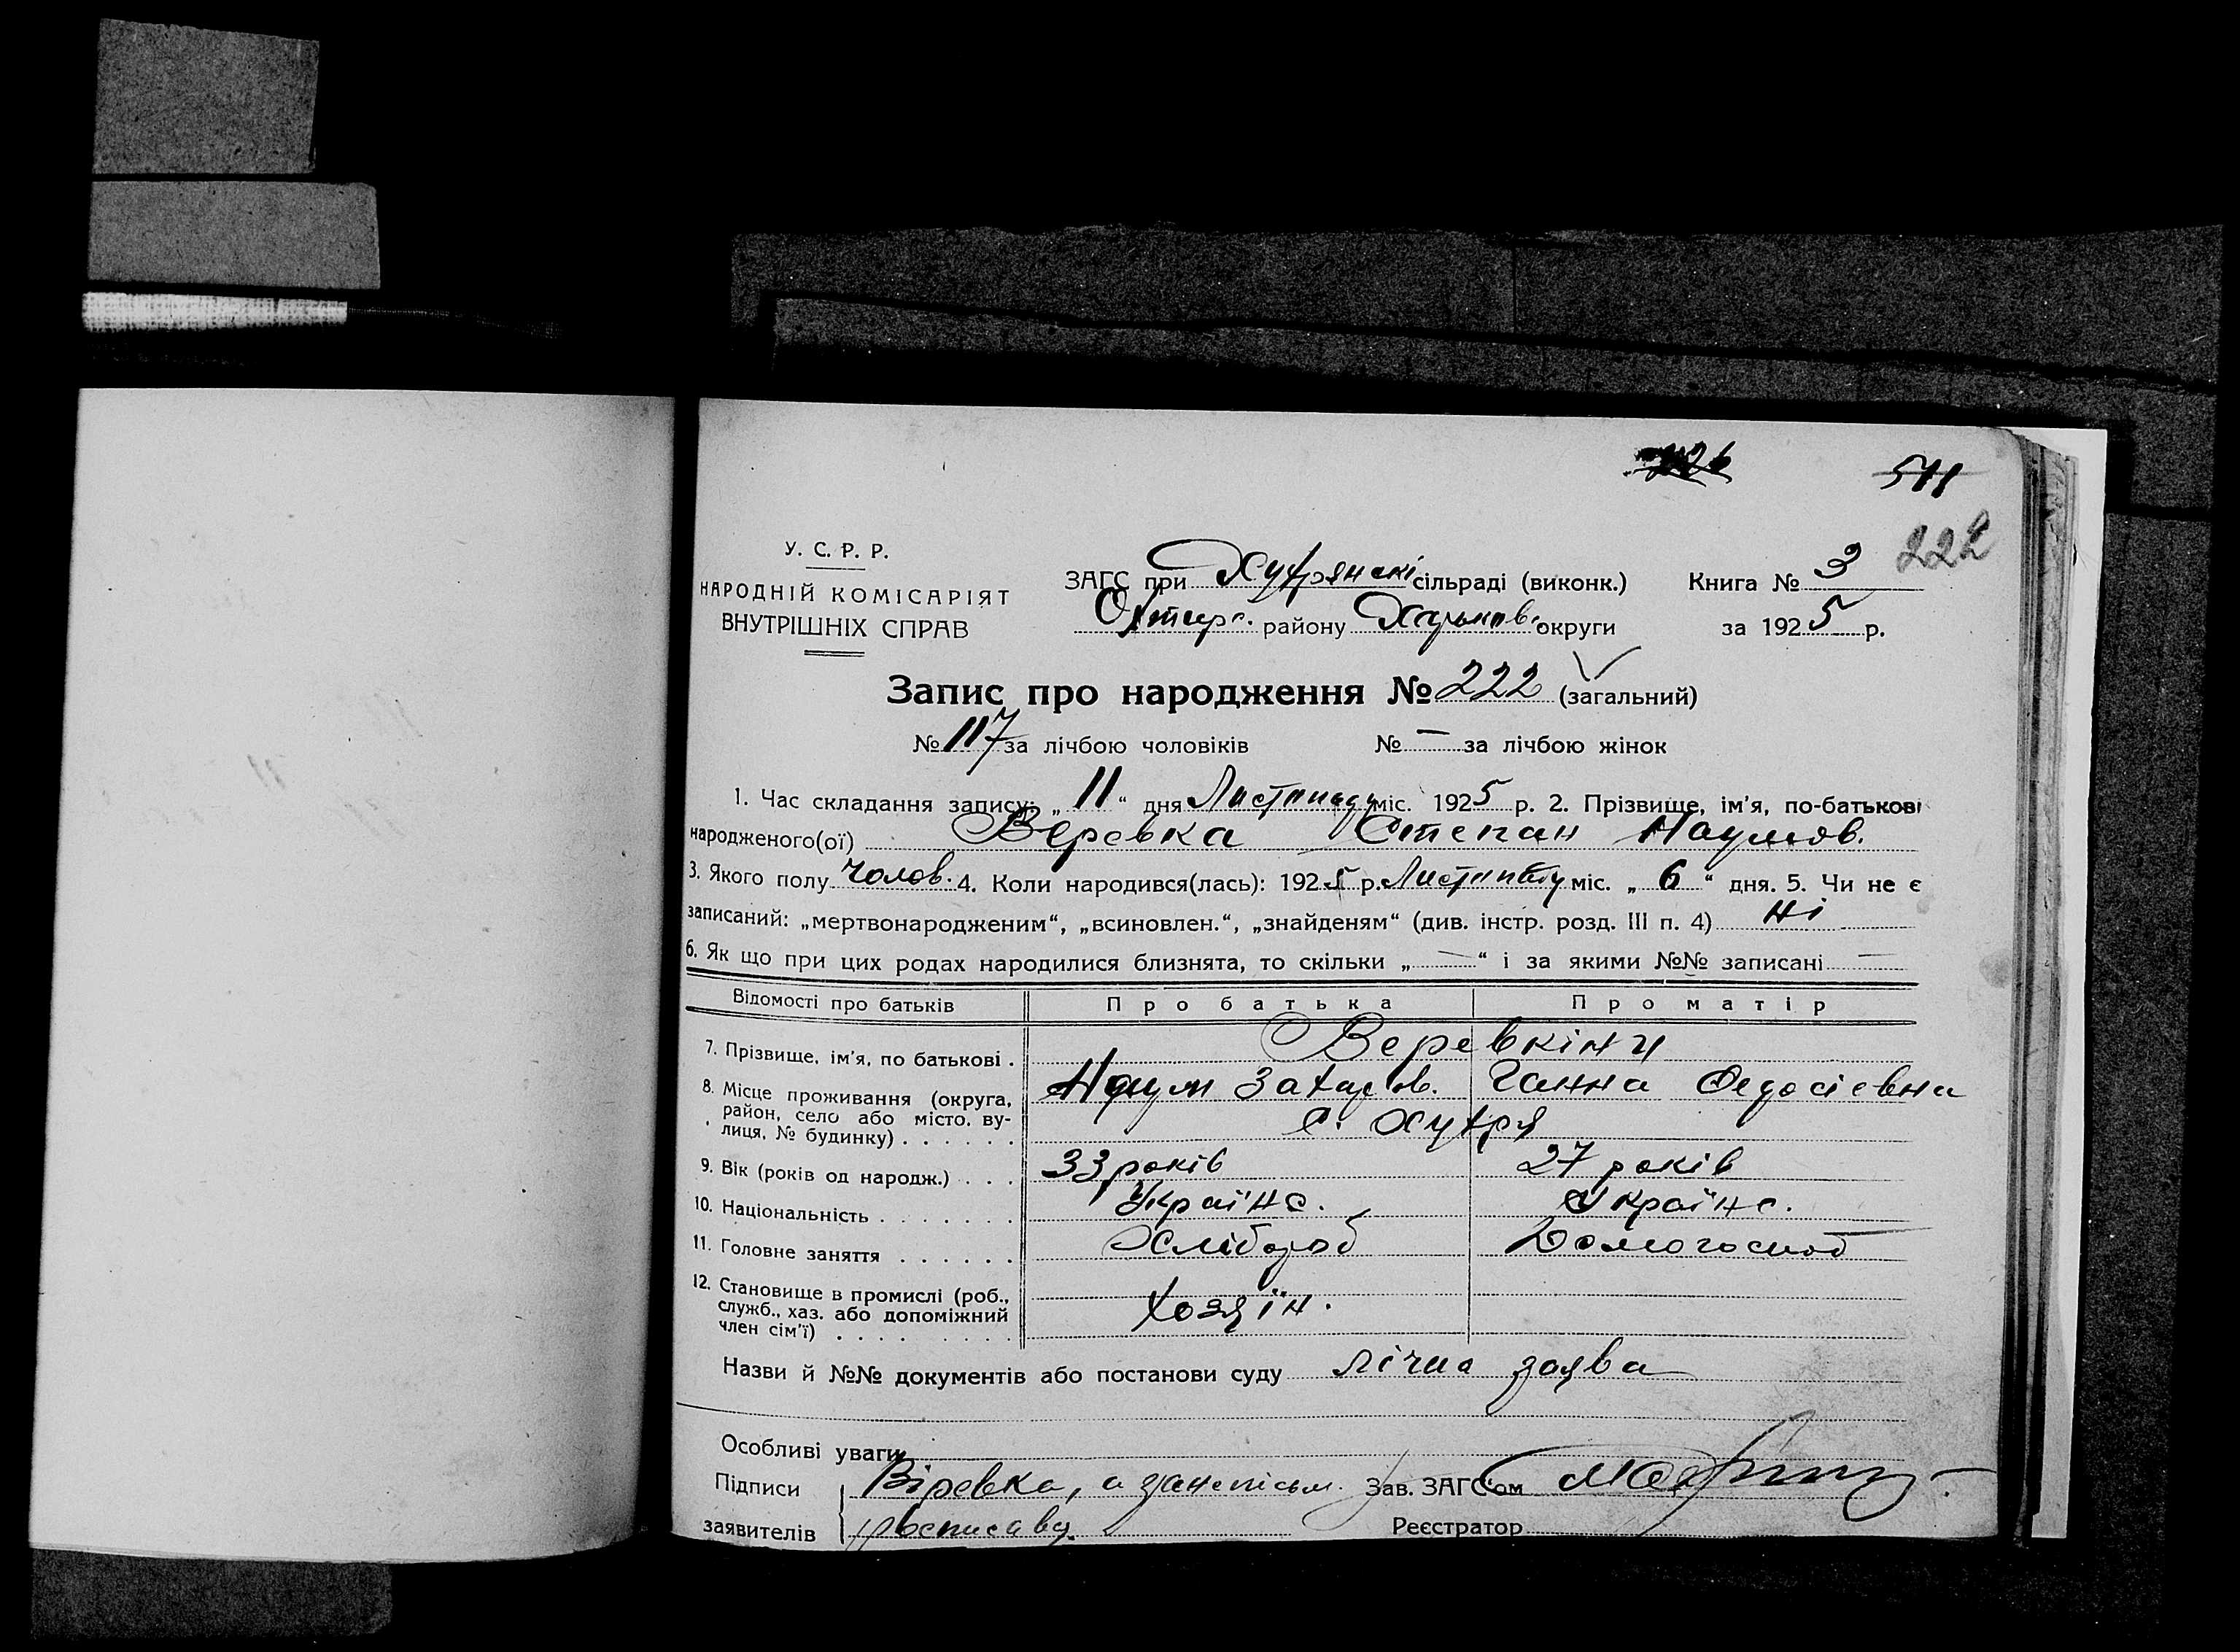 226 511
222
У. С. Р. Р.
НАРОДНІЙ КОМІСАРІЯТ
ВНУТРІШНІХ СПРАВ
ЗАГС при Хухрянскі сільраді (виконк.) Книга № 3
Охтирс. району Харьковс. округи за 1925 р.
Запис про народження № 222 (загальний)
№ 117 за лічбою чоловіків № — за лічбою жінок
1. Час складання запису: „ 11 “ дня Листопаду міс. 1925 р. 2. Прізвище, ім'я, по-батькові
народженого(ої) Веревка Степан Наумов.
3. Якого полу чолов. 4. Коли народився(лась): 1925 р. Листопаду міс. „ 6 “ дня. 5. Чи не є
записаний: „мертвонародженим“, „всиновлен.“, „знайденям“ (див. інстр. розд. III п. 4) Ні
6. Як що при цих родах народилися близнята, то скільки „ — “ і за якими №№ записані —
Відомості про батьків Про батька Про матір
7. Прізвище, ім'я, по батькові . Веревкіни
Наум Захаров. Ганна Федосієвна
8. Місце проживання (округа,
район, село або місто, ву-
лиця, № будинку) . . . . . . с. Хухря
9. Вік (років од народж.) . . . 33 років 27 років
10. Національність . . . . . . . Українс. Українс.
11. Головне заняття . . . . . . Хлібороб Домогоспод
12. Становище в промислі (роб.,
служб., хаз. або допоміжний
член сім'ї) . . . . . . . . Хозяїн.
Назви й №№ документів або постанови суду лічна заява
Особливі уваги
Підписи Віревка, а за непісьм. Зав. ЗАГС'ом
заявителів росписавсь Реєстратор